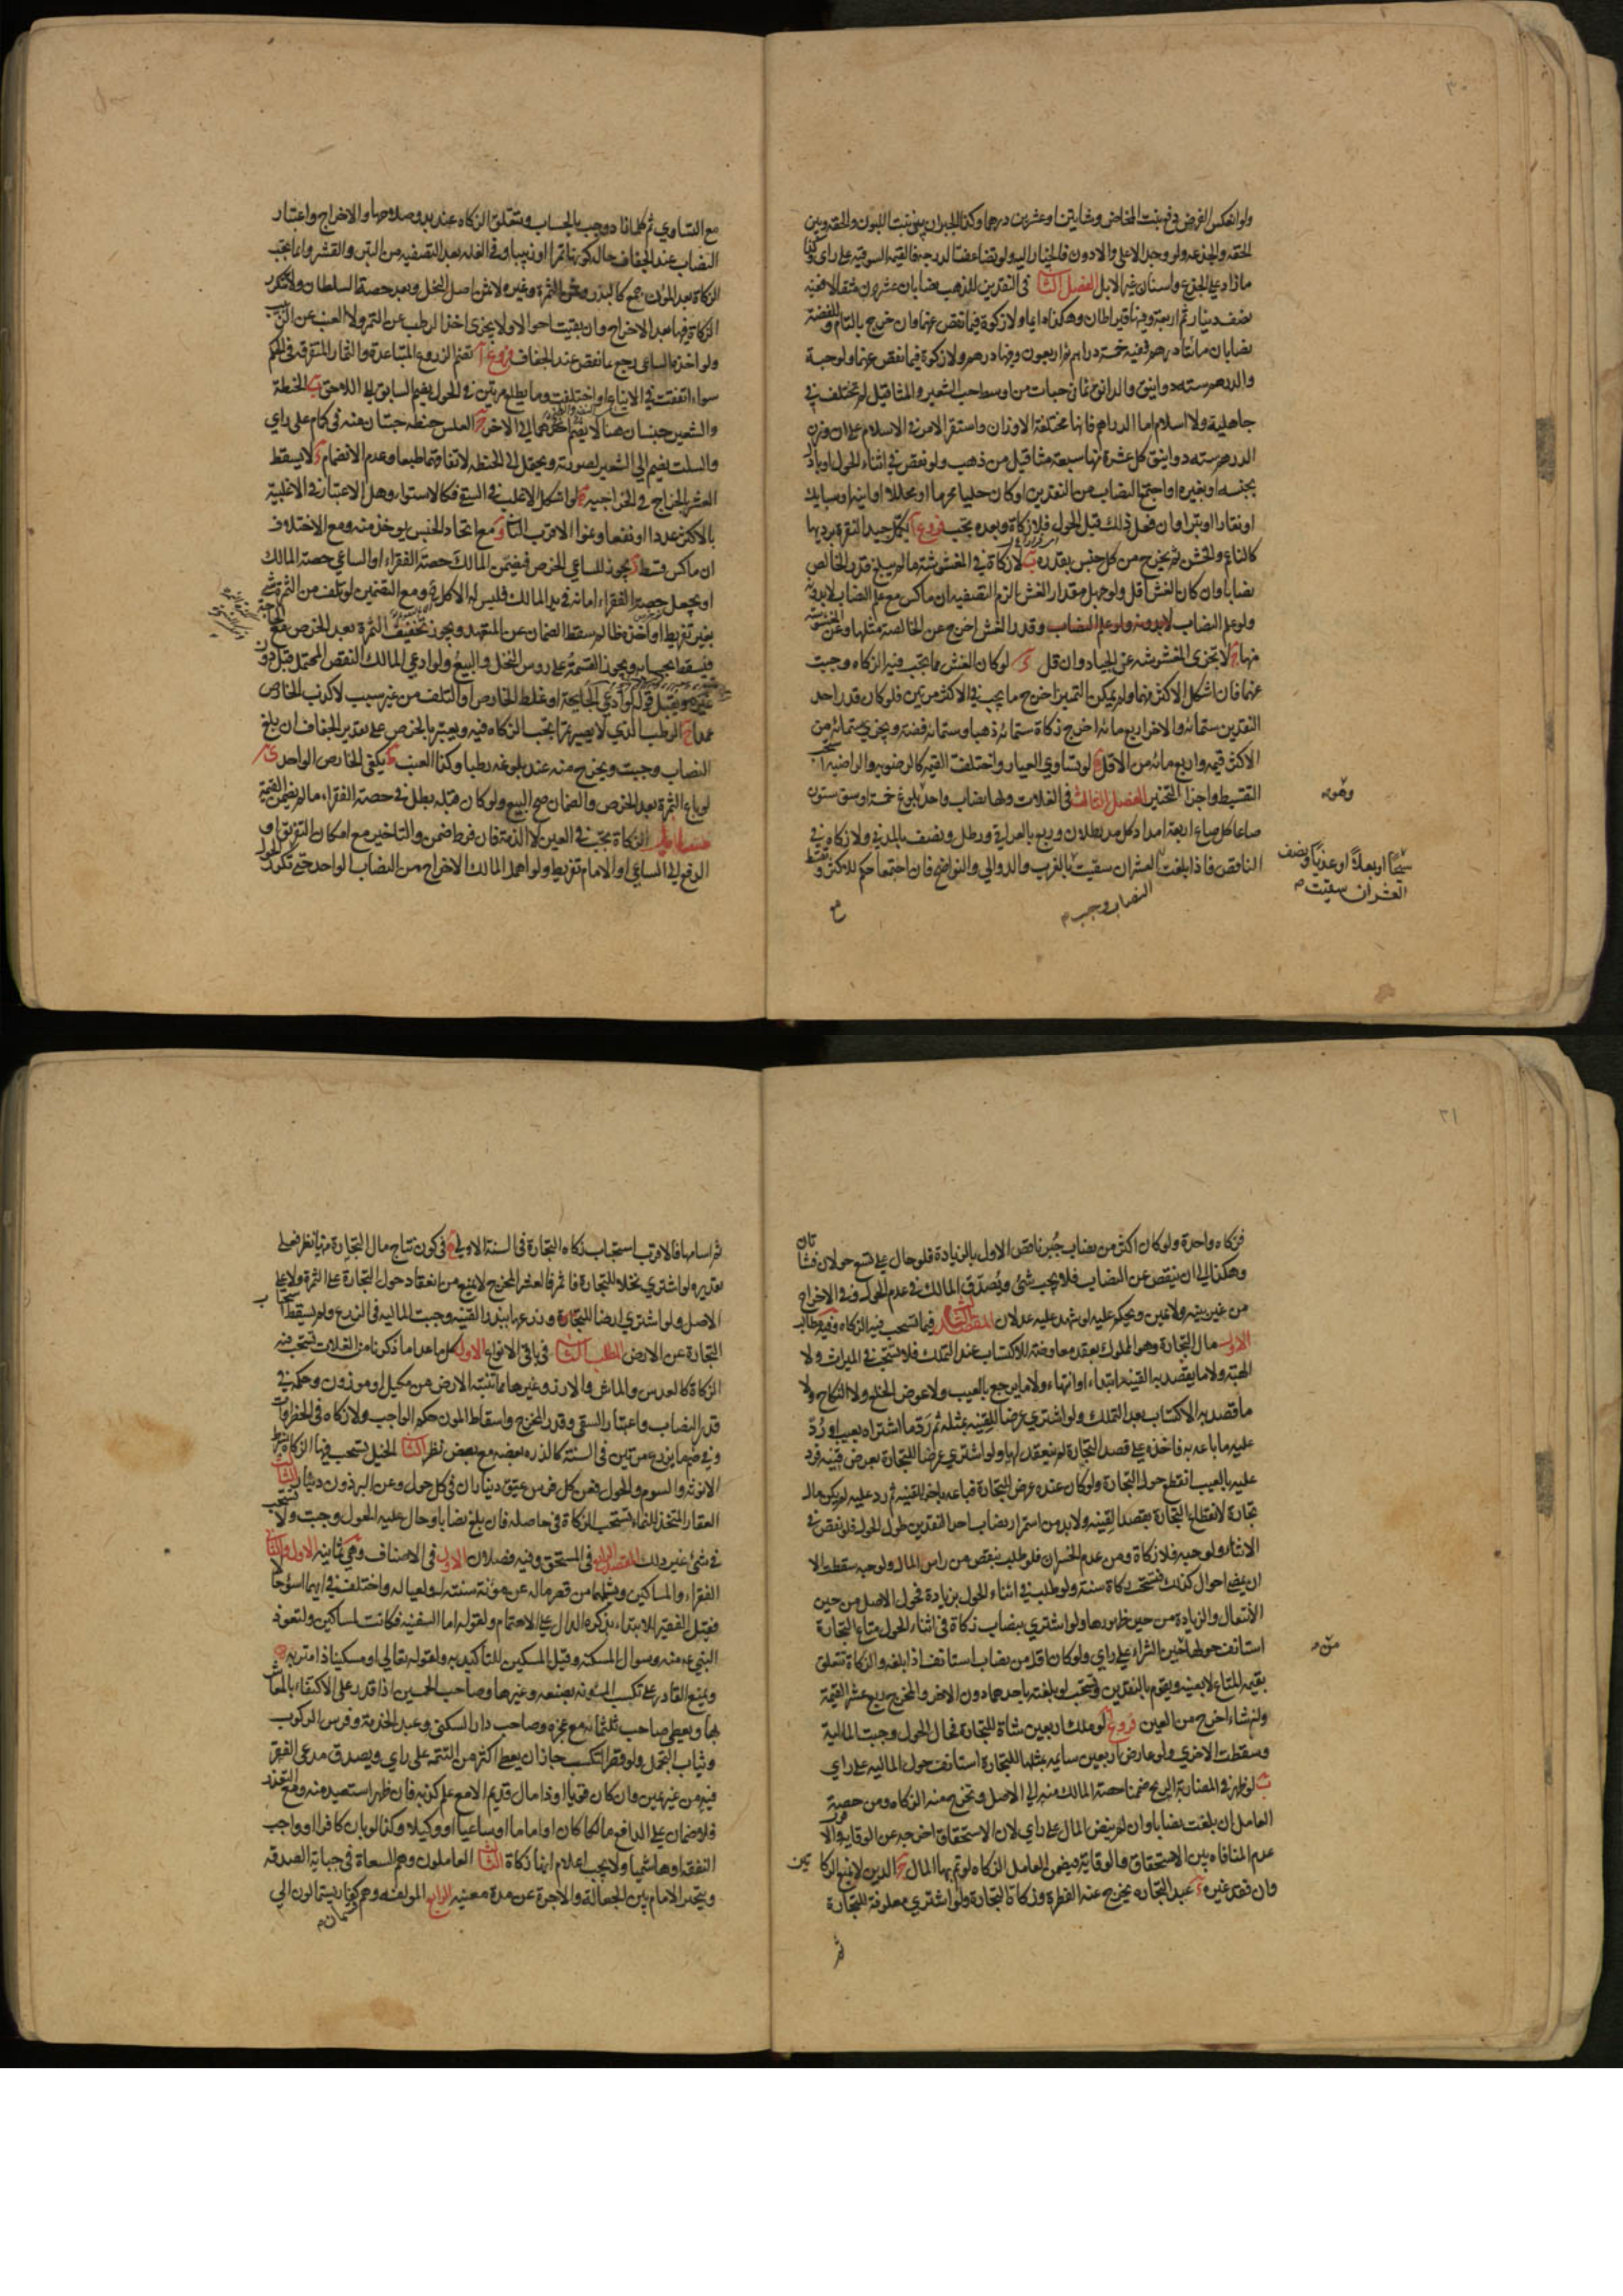 ولو انعكس الفرض دفع بنت المخاض وشاتين او عشرين درهما وكذا الجبران بين بنت اللبون والحقة وبين
الحقة والجذعة ولو وجد الاعلى والادون فالخيار اليه ولو تضاعفت الدرجة فالقيمة السوقية على راي وكذا
ما زاد على الجذع واسنان غير الابل الفصل الثاني في النقدين للذهب نصابان عشرون مثقالا ففيه
نصف دينار ثم اربعة وفيها قيراطان وهكذا دايما ولا زكوة فيما نقص عنهما وان خرج بالتام وللفضة
نصابان مائتا درهم ففيه خمسة دراهم ثم اربعون وفيها درهم ولا زكوة فيما نقص عنهما ولو حبة
والدرهم ستة دوانيق والدانق ثمان حبات من اوسط حب الشعير والمثاقيل لم تختلف في
جاهلية ولا اسلام اما الدراهم فانها مختلفة الاوزان واستقر الامر في الاسلام على ان وزن
الدرهم ستة دوانيق كل عشرة منها سبعة مثاقيل من ذهب ولو نقص في اثناء الحول او بادل
بجنسه او بغيره او اجتمع النصاب من النقدين او كان حليا محرما او محللا او انية او سبايك
او نقارا او تبرا وان فعل ذلك قبل الحول فلا زكاة وبعده يجب فروع آ يكمل جيد النقرة برديها
كالناعم والخشن ثم يخرج من كل جنس بقدره ب لا زكاة في المغشوشة ما لم يبلغ قدر الخالص
نصابا وان كان الغش اقل ولو جهل مقدار الغش الزم التصفية ان ماكس مع علم النصاب لا بدونه
ولو علم النصاب وقدر الغش اخرج عن الخالصة مثلها وعن المغشوشة
منها ج لا تجزى المغشوشة عن الجياد وان قل د لو كان الغش مما يجب فيه الزكاة وجبت
عنهما فان اشكل الاكثر منهما ولم يمكن التميز اخرج ما يجب في الاكثر مرتين فلو كان قدر احد
النقدين ستمائة والاخر اربعمائة اخرج زكاة ستمائة ذهبا وستمائة فضة ويجزي ستمائة من
الاكثر قيمة واربعمائة من الاقل ه لو تساوى العيار واختلفت القيمة كالرضوية والراضية استحب
التقسيط واجزا التخيير الفصل الثالث في الغلات ولها نصاب واحد بلوغ خمسة اوسق ستون
وهو
صاعا كل صاع اربعة امداد كل مد رطلان وربع بالعراقي ورطل ونصف بالمدني ولا زكاة في
الناقص فاذا بلغت العشر ان سقيت بالغرب والدوالي والنواضح فان اجتمعا حكم للاكثر ويقسط
سيحا او بعلا او عذيا ونصف
العشر ان سقيت
النصاب وجب
مع
مع التساوي ثم كلما زادت وجب بالحساب ويتعلق الزكاة عند بدو صلاحها والاخراج واعتبار
النصاب عند الجفاف حالة كونها تمرا او زبيبا وفي الغلة بعد التصفية من التبن والقشر وانما يجب
الزكاة بعد المؤن اجمع كالبذر وثمن الثمرة وغيره لا ثمن اصل النخل وبعد حصة السلطان ولا تتكرر
الزكاة فيها بعد الاخراج وان بقيت احوالا ولا يجزى اخذ الرطب عن التمر ولا العنب عن الزبيب
ولو اخذه الساعي رجع بما نقص عند الجفاف فروع آ تضم الزروع المتباعدة والثمار المتفرقة في الحكم
سواء اتفقت في الايناع او اختلفت وما يطلع مرتين في الحول يضم السابق الى اللاحق ب الحنطة
والشعير جنسان هنا لا يضم احدهما الى الاخر ج العلس حنطة حبتان منه في كمام على راي
والسلت يضم الى الشعير لصورته ويحتمل الى الحنطة لاتفاقهما طبعا وعدم الانضمام د لا يسقط
العشر الخراج في الخراجية ه لو اشكل الاغلب في السقي فكالاستواء وهل الاعتبار في الاغلبية
بالاكثر عددا او نفعا ونموا الاقرب الثاني و مع اتحاد الجنس يؤخذ منه ومع الاختلاف
ان ماكس قسط ز يجوز للساعي الخرص فيضمن المالك حصة الفقراء او الساعي حصة المالك
او يجعل حصة الفقراء امانة في يد المالك فليس له الاكل ومع التضمين لو تلف من الثمرة شيء
بغير تفريط او اخذه ظالم سقط الضمان عن المتعهد ويجوز تخفيف الثمرة بعد الخرص مع الحاجة
فيسقط بحسابه ويجوز القسمة على رؤس النخل والبيع ولو ادعى المالك النقص المحتمل قبل
قوله لو ادعى الجايحة او غلط الخارص او التلف من غير سبب لا كذب الخارص
عمدا ح الرطب الذي لا يصير تمرا تجب الزكاة فيه ويعتبر بالخرص على تقدير الجفاف ان بلغ
النصاب وجبت ويخرج منه عند بلوغه رطبا وكذا العنب ط يكفي الخارص الواحد ي
لو باع الثمرة بعد الخرص والضمان صح البيع ولو كان قبله بطل في حصة الفقراء ما لم يضمن القيمة
الزكاة تجب في العين لا الذمة فان فرط ضمن والتاخير مع امكان التفريق او
الدفع الى الساعي او الامام تفريط ولو اهمل المالك الاخراج من النصاب الواحد حتى تكرر الحول
فزكاة واحدة ولو كان اكثر من نصاب جبر ناقص الاول بالزيادة فلو حال على تسع حولان فشاتان
وهكذا الى ان ينقص عن النصاب فلا يجب شئ ويصدق المالك في عدم الحول وفي الاخراج
من غير بينة ولا يمين ويحكم عليه لو شهد عليه عدلان المقصد الثالث فيما تستحب فيه الزكاة وفيه مطالب
الاول مال التجارة وهو المملوك بعقد معاوضة للاكتساب عند التملك فلا تستحب في الميراث ولا
الهبة ولا ما يقصد به القنية ابتداء او انتهاء ولا ما يرجع بالعيب ولا عوض الخلع ولا النكاح ولا
ما قصد به الاكتساب بعد التملك ولو اشترى عرضا للقنية بمثله ثم رد ما اشتراه بعيب او رد
عليه ما باعه به فاخذه على قصد التجارة لم ينعقد لها ولو اشترى عرضا للتجارة بعرض قنية فرد
عليه بالعيب انقطع حول التجارة ولو كان عنده عرض للتجارة فباعه باخر للقنية ثم رد عليه لم يكن مال
تجارة لانقطاع التجارة بقصد القنية ولا بد من استمرار نصاب احد النقدين طول الحول فلو نقص في
الاثناء ولو حبة فلا زكاة ومن عدم الخسران فلو طلب بنقص من راس المال ولو حبة سقطت الا
ان يمضى احوال كذلك فتستحب زكاة سنة ولو طلب في اثناء الحول بزيادة فحول الاصل من حين
الانتقال والزيادة من حين ظهورها ولو اشترى بنصاب زكاة في اثناء الحول متاع التجارة
استانف حولها من حين الشراء على راي ولو كان اقل من نصاب استانف اذا بلغه والزكاة تتعلق
من
بقيمة المتاع لا بعينه ويقوم بالنقدين وتستحب لو بلغته باحدهما دون الاخر والمخرج ربع عشر القيمة
وان شاء اخرج من العين فروع آ لو ملك اربعين شاة للتجارة فحال الحول وجبت المالية
وسقطت الاخرى ولو عارض اربعين سايمة بمثلها للتجارة استانف حول المالية على راي
ب لو ظهر في المضاربة الربح ضمنا حصة المالك منه الى الاصل وتخرج منه الزكاة ومن حصة
العامل ان بلغت نصابا وان لم ينض المال على راي لان الاستحقاق اخرجه عن الوقاية والاقرب
عدم المنافاة بين الاستحقاق والوقاية فيضمن العامل الزكاة لو تم بها المال ج الدين لا يمنع الزكاتين
وان فقد غيره د عبد التجارة يخرج عنه الفطرة وزكاة التجارة ه لو اشترى معلوفة للتجارة
ثم
ثم اسامها فالاقرب استحباب زكاة التجارة في السنة الاولى و في كون نتاج مال التجارة منها نظر فعلى
تقديره لو اشترى نخلا للتجارة فاثمر فالعشر المخرج لا يمنع من انعقاد حول التجارة على الثمرة ولا على
الاصل ولو اشترى ارضا للتجارة وزرعها ببذر القنية وجبت المالية في الزرع ولم يسقط استحباب
التجارة عن الارض المطلب الثاني في باقي الانواع الاول كل ما عدا ما ذكرنا من الغلات تستحب فيه
الزكاة كالعدس والماش والارز وغيرها مما تنبته الارض من مكيل او موزون وحكمه في
قدر النصاب واعتبار السقي وقدر المخرج واسقاط المؤن حكم الواجب ولا زكاة في الخضراوات
وفي ضم ما يزرع مرتين في السنة كالذرة بعضه مع بعض نظر الثاني الخيل تستحب فيها الزكاة بشرط
الانوثة والسوم والحول فعن كل فرس عتيق ديناران في كل حول وعن البرذون دينار الثالث
العقار المتخذ للنماء تستحب الزكاة في حاصله فان بلغ نصابا وحال عليه الحول وجبت ولا تستحب
في شئ غير ذلك المقصد الرابع في المستحق وفيه فصلان الاول في الاصناف وهي ثمانية الاول والثاني
الفقراء والمساكين ويشملهما من قصر ماله عن مؤنة سنته له ولعياله واختلف في ايهما اسوء حالا
فقيل الفقير للابتداء بذكره الدال على الاهتمام ولقوله اما السفينة فكانت لمساكين ولتعوذ
النبي منه وسؤال المسكنة وقيل المسكين للتأكيد به ولقوله تعالى او مسكينا ذا متربة
ويمنع القادر على تكسب المؤنة بصنعة وغيرها وصاحب الخمسين اذا قدر على الاكتفاء بالمعاش
بها ويعطى صاحب ثلثمائة مع عجزه وصاحب دار السكنى وعبد الخدمة وفرس الركوب
وثياب التجمل ولو قصر التكسب جاز ان يعطى اكثر من التتمة على راي ويصدق مدعي الفقر
فيه من غير يمين وان كان قويا او ذا مال قديم الا مع علم كذبه فان ظهر استعيد منه ومع التعذر
فلا ضمان على الدافع مالكا كان او اماما او ساعيا او وكيلا وكذا لو بان كافرا او واجب
النفقة او هاشميا ولا يجب اعلام انها زكاة الثالث العاملون وهم السعاة في جباية الصدقة
ويتخير الامام بين الجعالة والاجرة عن مدة معينة الرابع المؤلفة وهم كفار يستمالون الى
قسمان